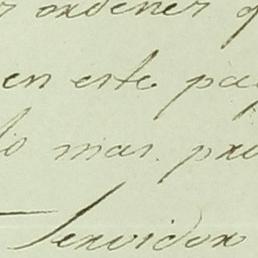 ordener
en este pa
lo mas pro
Servidor